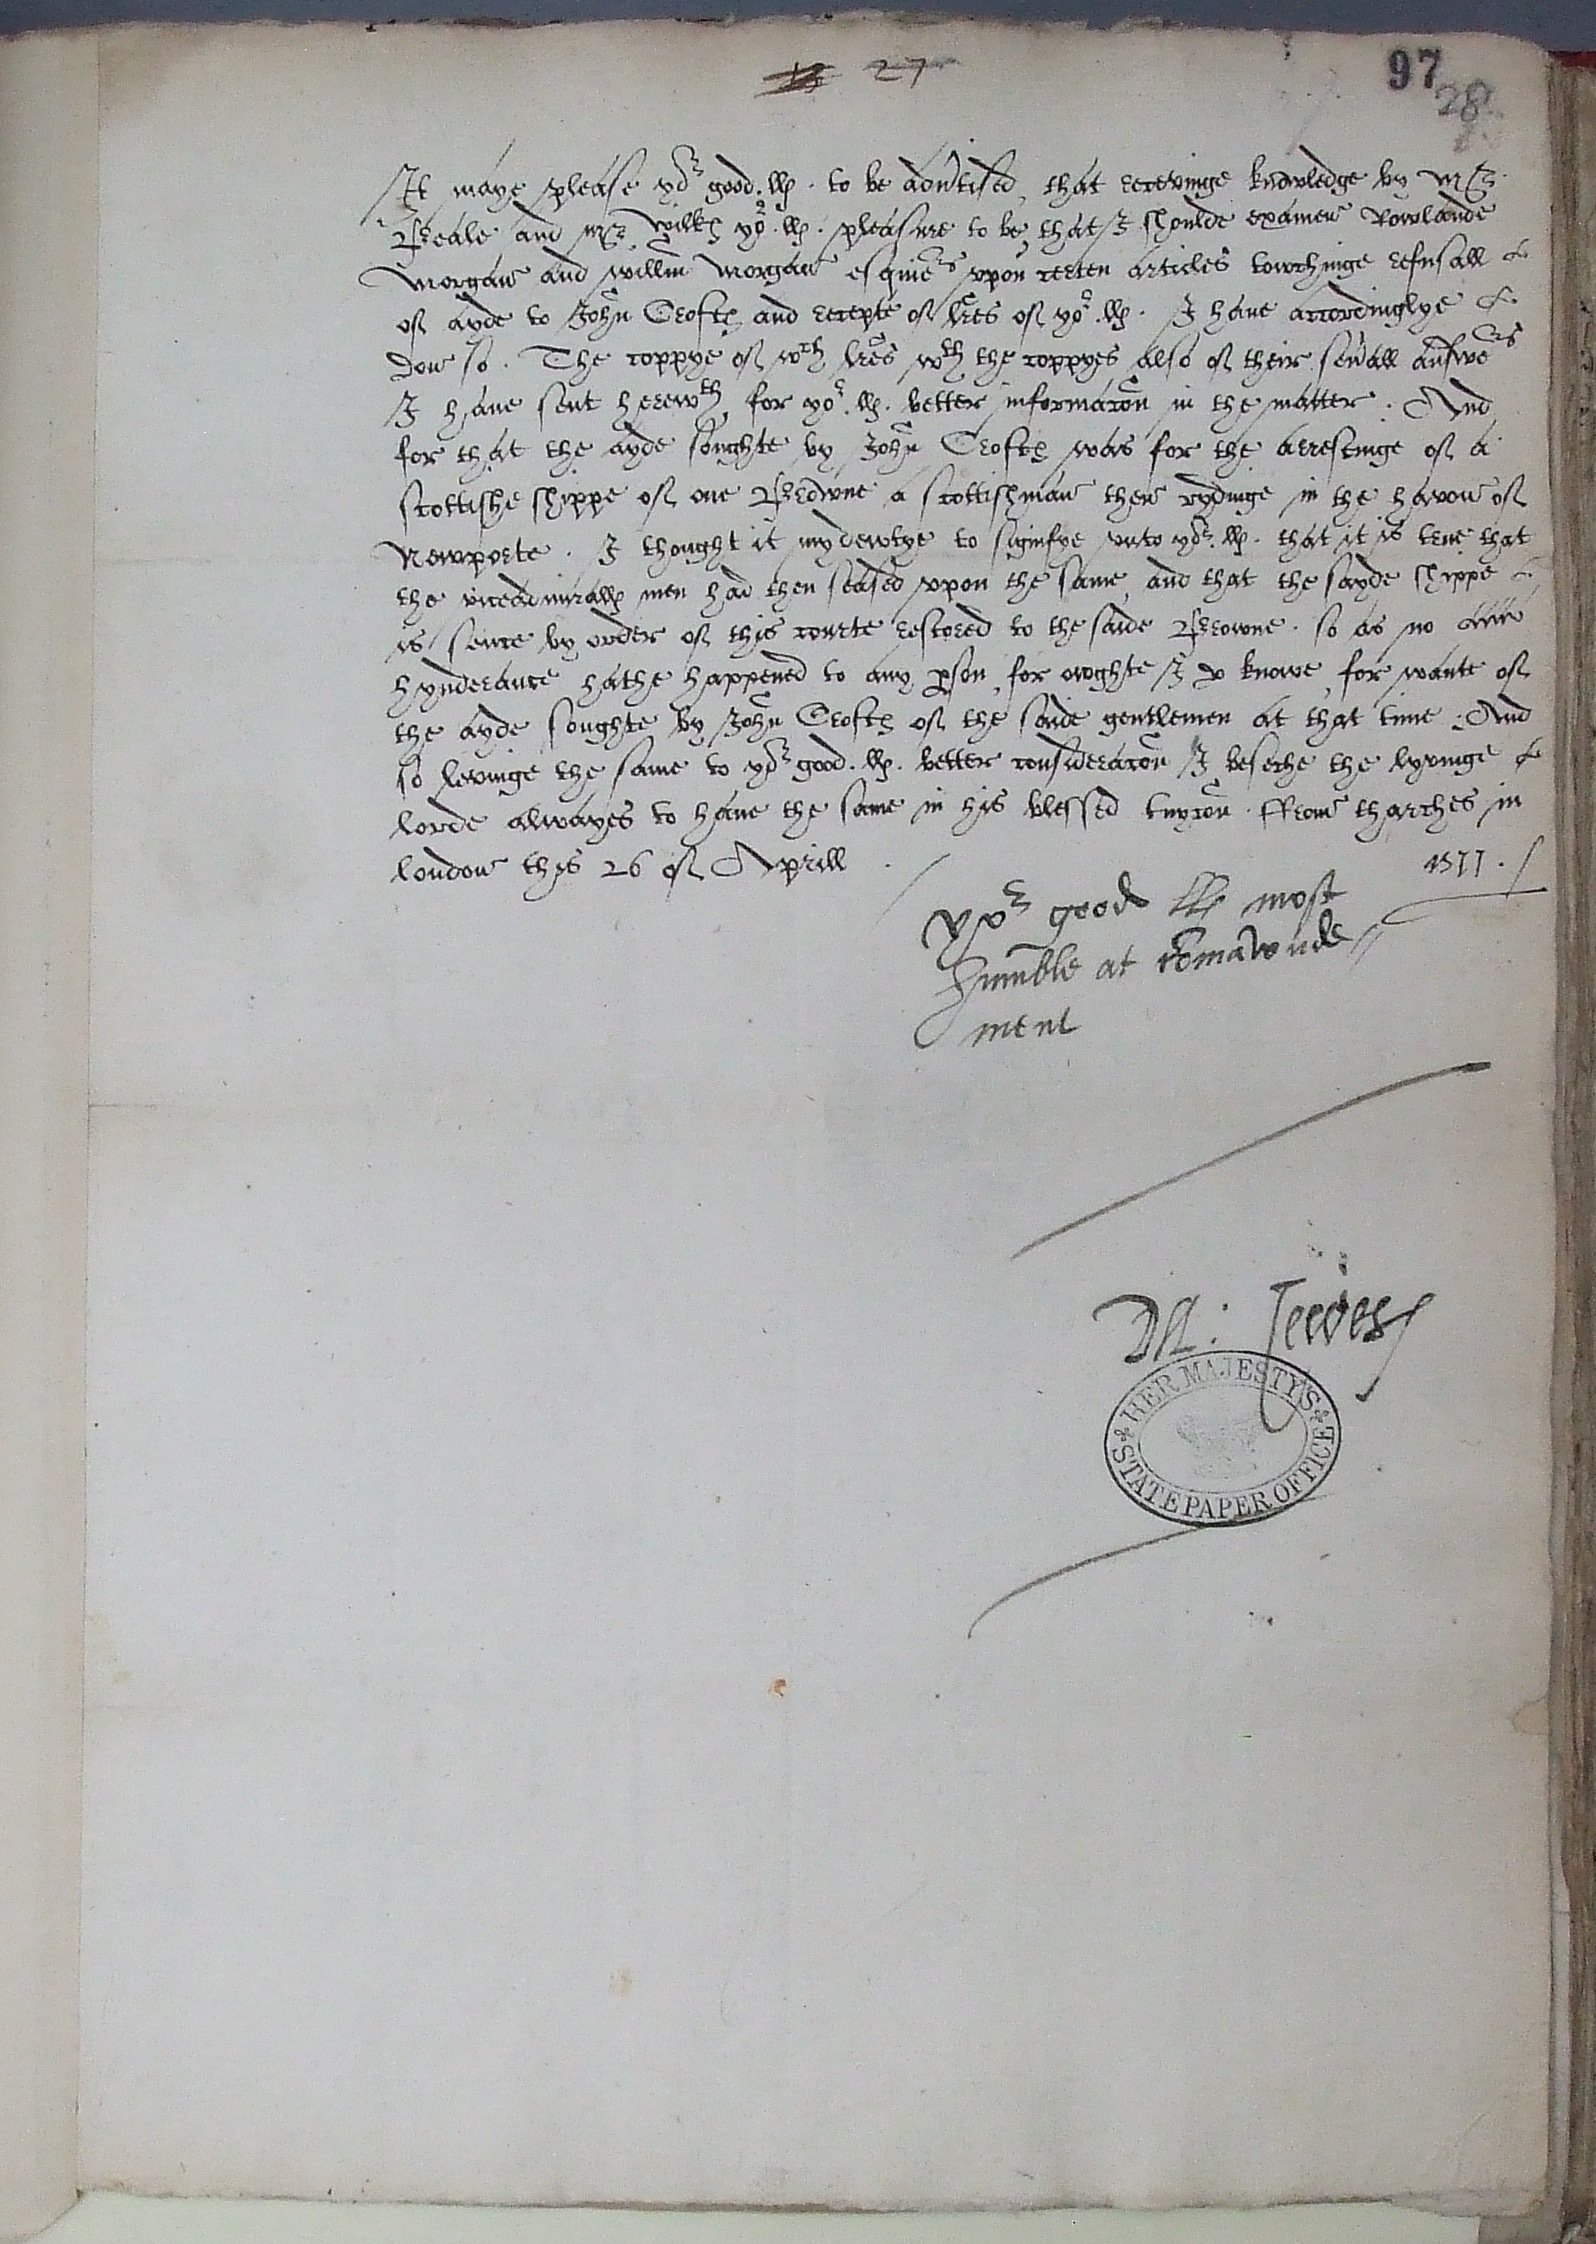 27
97
28
It maye please yor good .llp. to be advtised, that receivinge knowledge by Mr
Beale and Mr Wilkes yor .llp. pleasure to be, that I shoulde examen Rowlande
Morgan and Willm Morgan esquiers vpon certen articles towchinge refusall
of ayde to John Croftes and recepte of lres of yor .llp. I haue accordinglye
don so. The coppye of wch lres wth the coppyes also of their seuall answers
I haue sent herewth, for yor .llp. better informacon in the matter. And
for that the ayde soughte by John Croftes was for the arrestinge of a
scottishe shippe of one Browne a scottishman then rydinge in the haven of
Newporte. I thought it my dewtye to signifye vnto yor .llp. that it is true that
the viceadmiralls men had then seased vpon the same, and that the sayde shippe
is sence by order of this courte restored to the saide Browne. so as no
hynderance hathe happened to any pson, for owghte I do knowe, for wante of
the ayde soughte by John Croftes of the saide gentlemen at that time. And
so levinge the same to yor good .llp. better consideracon I beseche the lyvinge
lorde alwayes to haue the same in his blessed tuycon. ffrom tharches in
london this 26 of Aprill 1577.
Yor good LLp most
humble at comawnde
ment
Da: Lewes
HER MAJESTY'S
STATE PAPER OFFICE